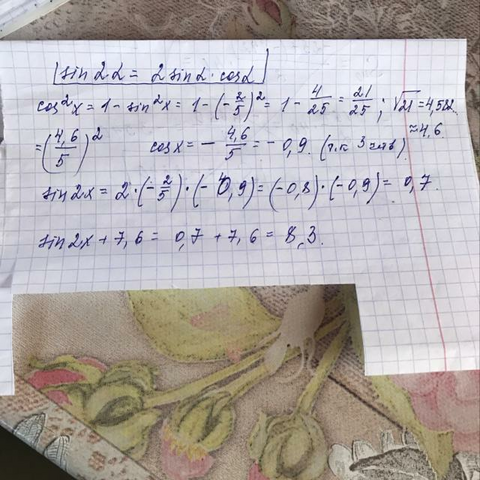 [sin2α = 2sinα·cosα]
cos²x = 1 - sin²x = 1 - (-2/5)² = 1 - 4/25 = 21/25; √21 = 4,582
≈ 4,6
= (4,6/5)² cosx = - 4,6/5 = - 0,9. (т.к 3 четв)
sin2x = 2·(-2/5)·(-0,9) = (-0,8)·(-0,9) = 0,7.
sin2x + 7,6 = 0,7 + 7,6 = 8,3.